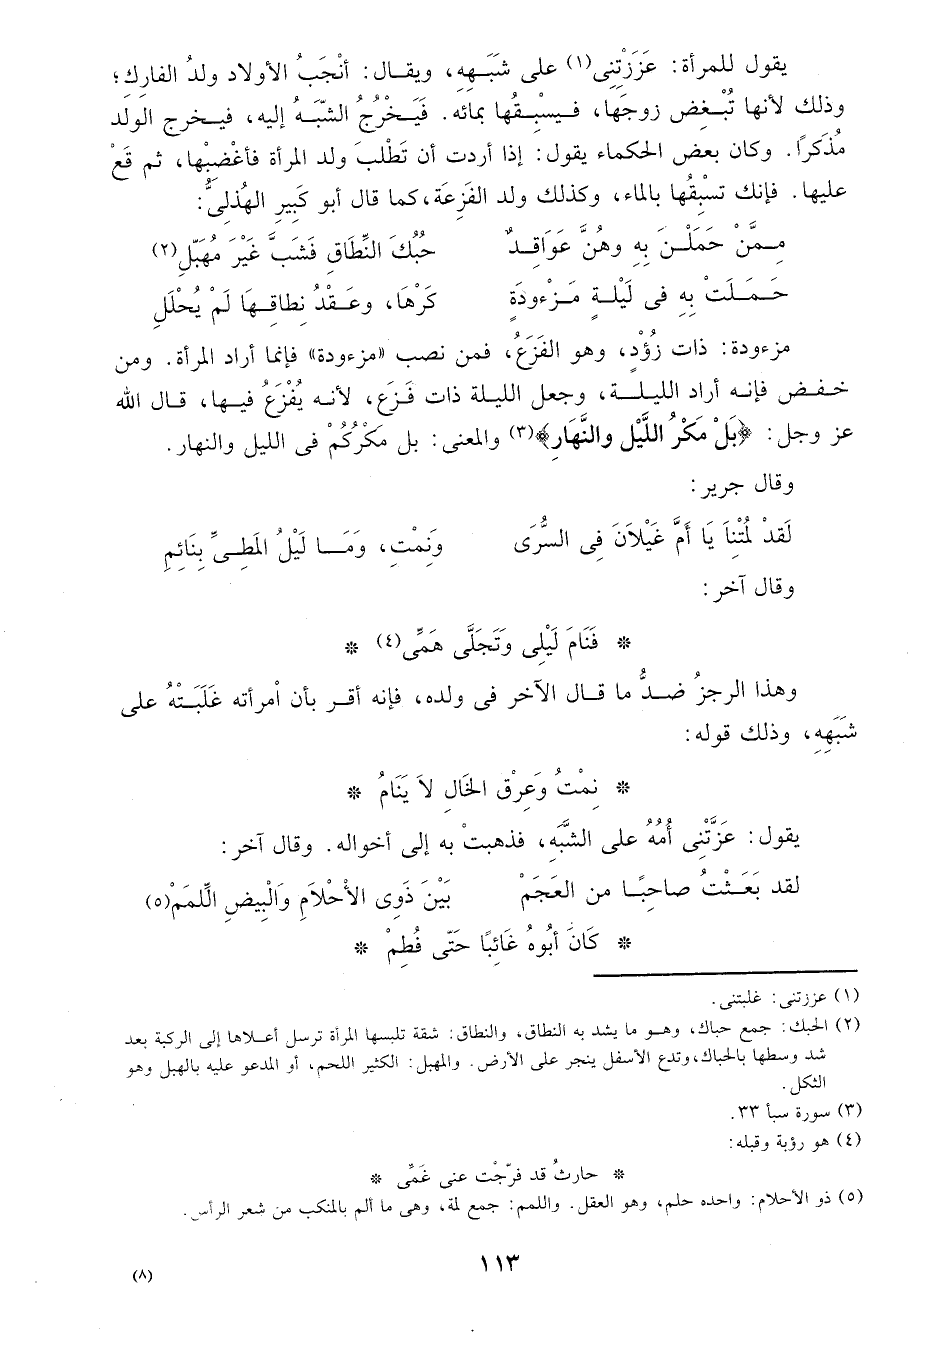 يقول للمرأة: عَزَزْتِنِى(١) على شَبَهِهِ، ويقال: أنْجَبُ الأولاد ولدُ الفارك؛
وذلك لأنها تُبْغِض زوجَها، فيسْبِقُها بمائه. فَيَخْرُجُ الشَّبَهُ إليه، فيخرج الولد
مُذَكرًا. وكان بعض الحكماء يقول: إذا أردت أن تَطْلبَ ولد المرأة فأغْضِبْها، ثم قَعْ
عليها. فإنك تسْبِقُها بالماء، وكذلك ولد الفَزعَة، كما قال أبو كَبِيرٍ الهُذَلىُّ:
مِمَّنْ حَمَلْنَ بِهِ وهُنَّ عَوَاقِدٌ حُبُكَ النِّطَاقِ فَشَبَّ غَيْرَ مُهَبَّلِ(٢)
حَمَلَتْ بِهِ فى لَيْلةٍ مَزْءودَةٍ كَرْهَا، وعَقْدُ نطاقِهَا لَمْ يُحْلَلِ
مزءودة: ذات زُؤْدٍ، وهو الفَزَعُ، فمن نصب «مزءودة» فإنما أراد المرأة. ومن
خفض فإنه أراد الليلة، وجعل الليلة ذات فَزَعٍ، لأنه يُفْزَعُ فيها، قال الله
عز وجل: ﴿بَلْ مَكْرُ اللَّيْلِ والنَّهَارِ﴾(٣) والمعنى: بل مكْرُكُمْ فى الليل والنهار.
وقال جرير:
لَقَدْ لُمْتِنَا يَا أمَّ غَيْلاَنَ فِى السُّرَى ونِمْتِ، وَمَا لَيْلُ المَطِىِّ بِنَائِمِ
وقال آخر:
* فَنَامَ لَيْلِى وَتَجَلَّى هَمِّى(٤) *
وهذا الرجزُ ضدُّ ما قال الآخر فى ولده، فإنه أقر بأن أمرأته غَلَبَتْهُ على
شَبَهِهِ، وذلك قوله:
* نِمْتُ وَعِرْقُ الخَالِ لاَ يَنَامُ *
يقول: عَزَّتْنِى أُمُّهُ على الشَّبَهِ، فذهبتْ به إلى أخواله. وقال آخر:
لقد بَعَثْتُ صاحبًا من العَجَمْ بَيْنَ ذَوِى الأحْلاَمِ وَالْبِيضِ اللِّمَمْ(٥)
* كَانَ أبُوهُ غَائبًا حَتّى فُطِمْ *
(١) عززتنى: غلبتنى.
(٢) الحبك: جمع حباك، وهو ما يشد به النطاق، والنطاق: شقة تلبسها المرأة ترسل أعلاها إلى الركبة بعد
شد وسطها بالحباك، وتدع الأسفل ينجر على الأرض. والمهبل: الكثير اللحم، أو المدعو عليه بالهبل وهو
الثكل.
(٣) سورة سبأ ٣٣.
(٤) هو رؤبة وقبله:
* حارثُ قد فرّجْت عنى غَمِّى *
(٥) ذو الأحلام: واحده حلم، وهو العقل. واللمم: جمع لمة، وهى ما ألم بالمنكب من شعر الرأس.
١١٣
(٨)